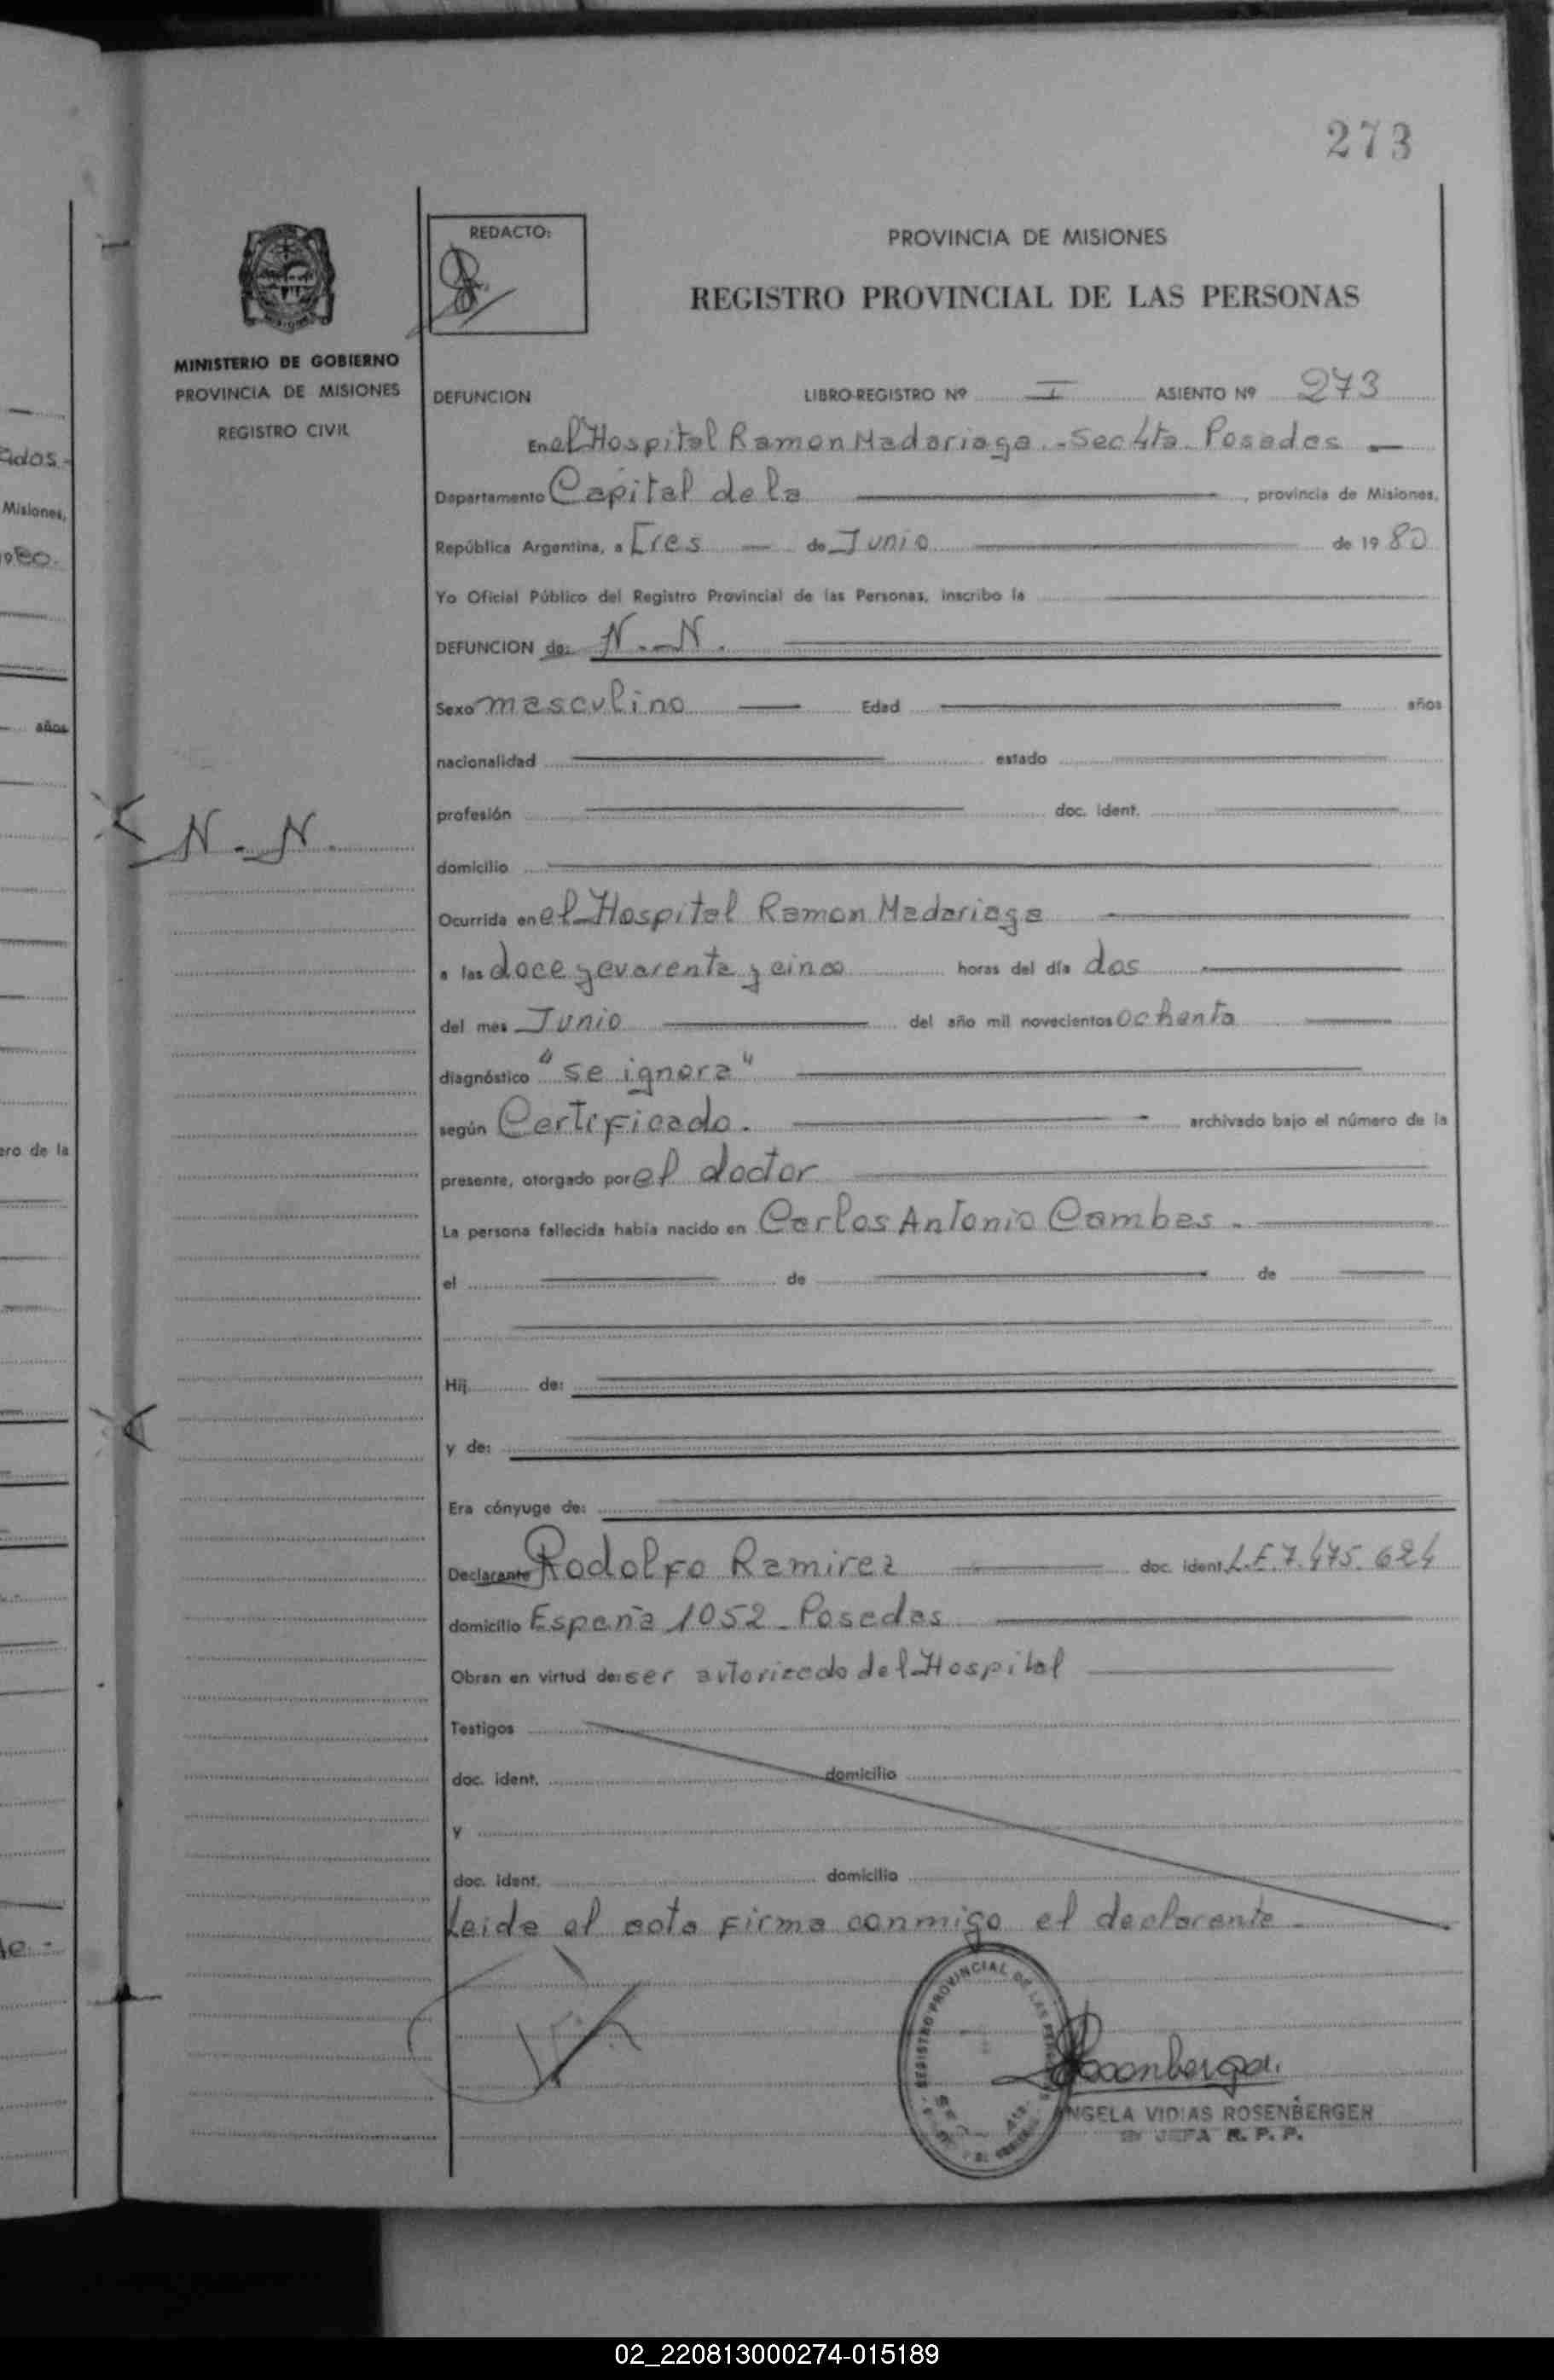 273
REDACTO:
PROVINCIA DE MISIONES
REGISTRO PROVINCIAL DE LAS PERSONAS
MINISTERIO DE GOBIERNO
PROVINCIA DE MISIONES
REGISTRO CIVIL
DEFUNCION LIBRO-REGISTRO Nº I ASIENTO Nº 273
En el Hospital Ramon Madariaga.-Sec 4ta. Posadas
Departamento Capital de la , provincia de Misiones,
República Argentina, a Tres de Junio de 1980
Yo Oficial Público del Registro Provincial de las Personas, inscribo la
DEFUNCION de: N.-N.
Sexo masculino Edad años
nacionalidad estado
profesión doc. ident.
N.-N.
domicilio
Ocurrida en el Hospital Ramon Madariaga
a las doce y cuarenta y cinco horas del día dos
del mes Junio del año mil novecientos ochenta
diagnóstico "se ignora"
según Certificado. archivado bajo el número de la
presente, otorgado por el doctor
La persona fallecida había nacido en Carlos Antonio Cambas.
el de de
Hij de:
y de:
Era cónyuge de:
Declarante Rodolfo Ramirez doc. ident. L.E.7.475.624
domicilio España 1052_Posadas
Obran en virtud de: ser autorizado del Hospital
Testigos
doc. ident. domicilio
y
doc. ident. domicilio
Leida el acta firma conmigo el declarante
REGISTRO PROVINCIAL DE LAS
Rosenberger
ANGELA VIDIAS ROSENBERGER
JEFA R. P. P.
ados.-
Misiones,
1980.
años
ero de la
02_220813000274-015189